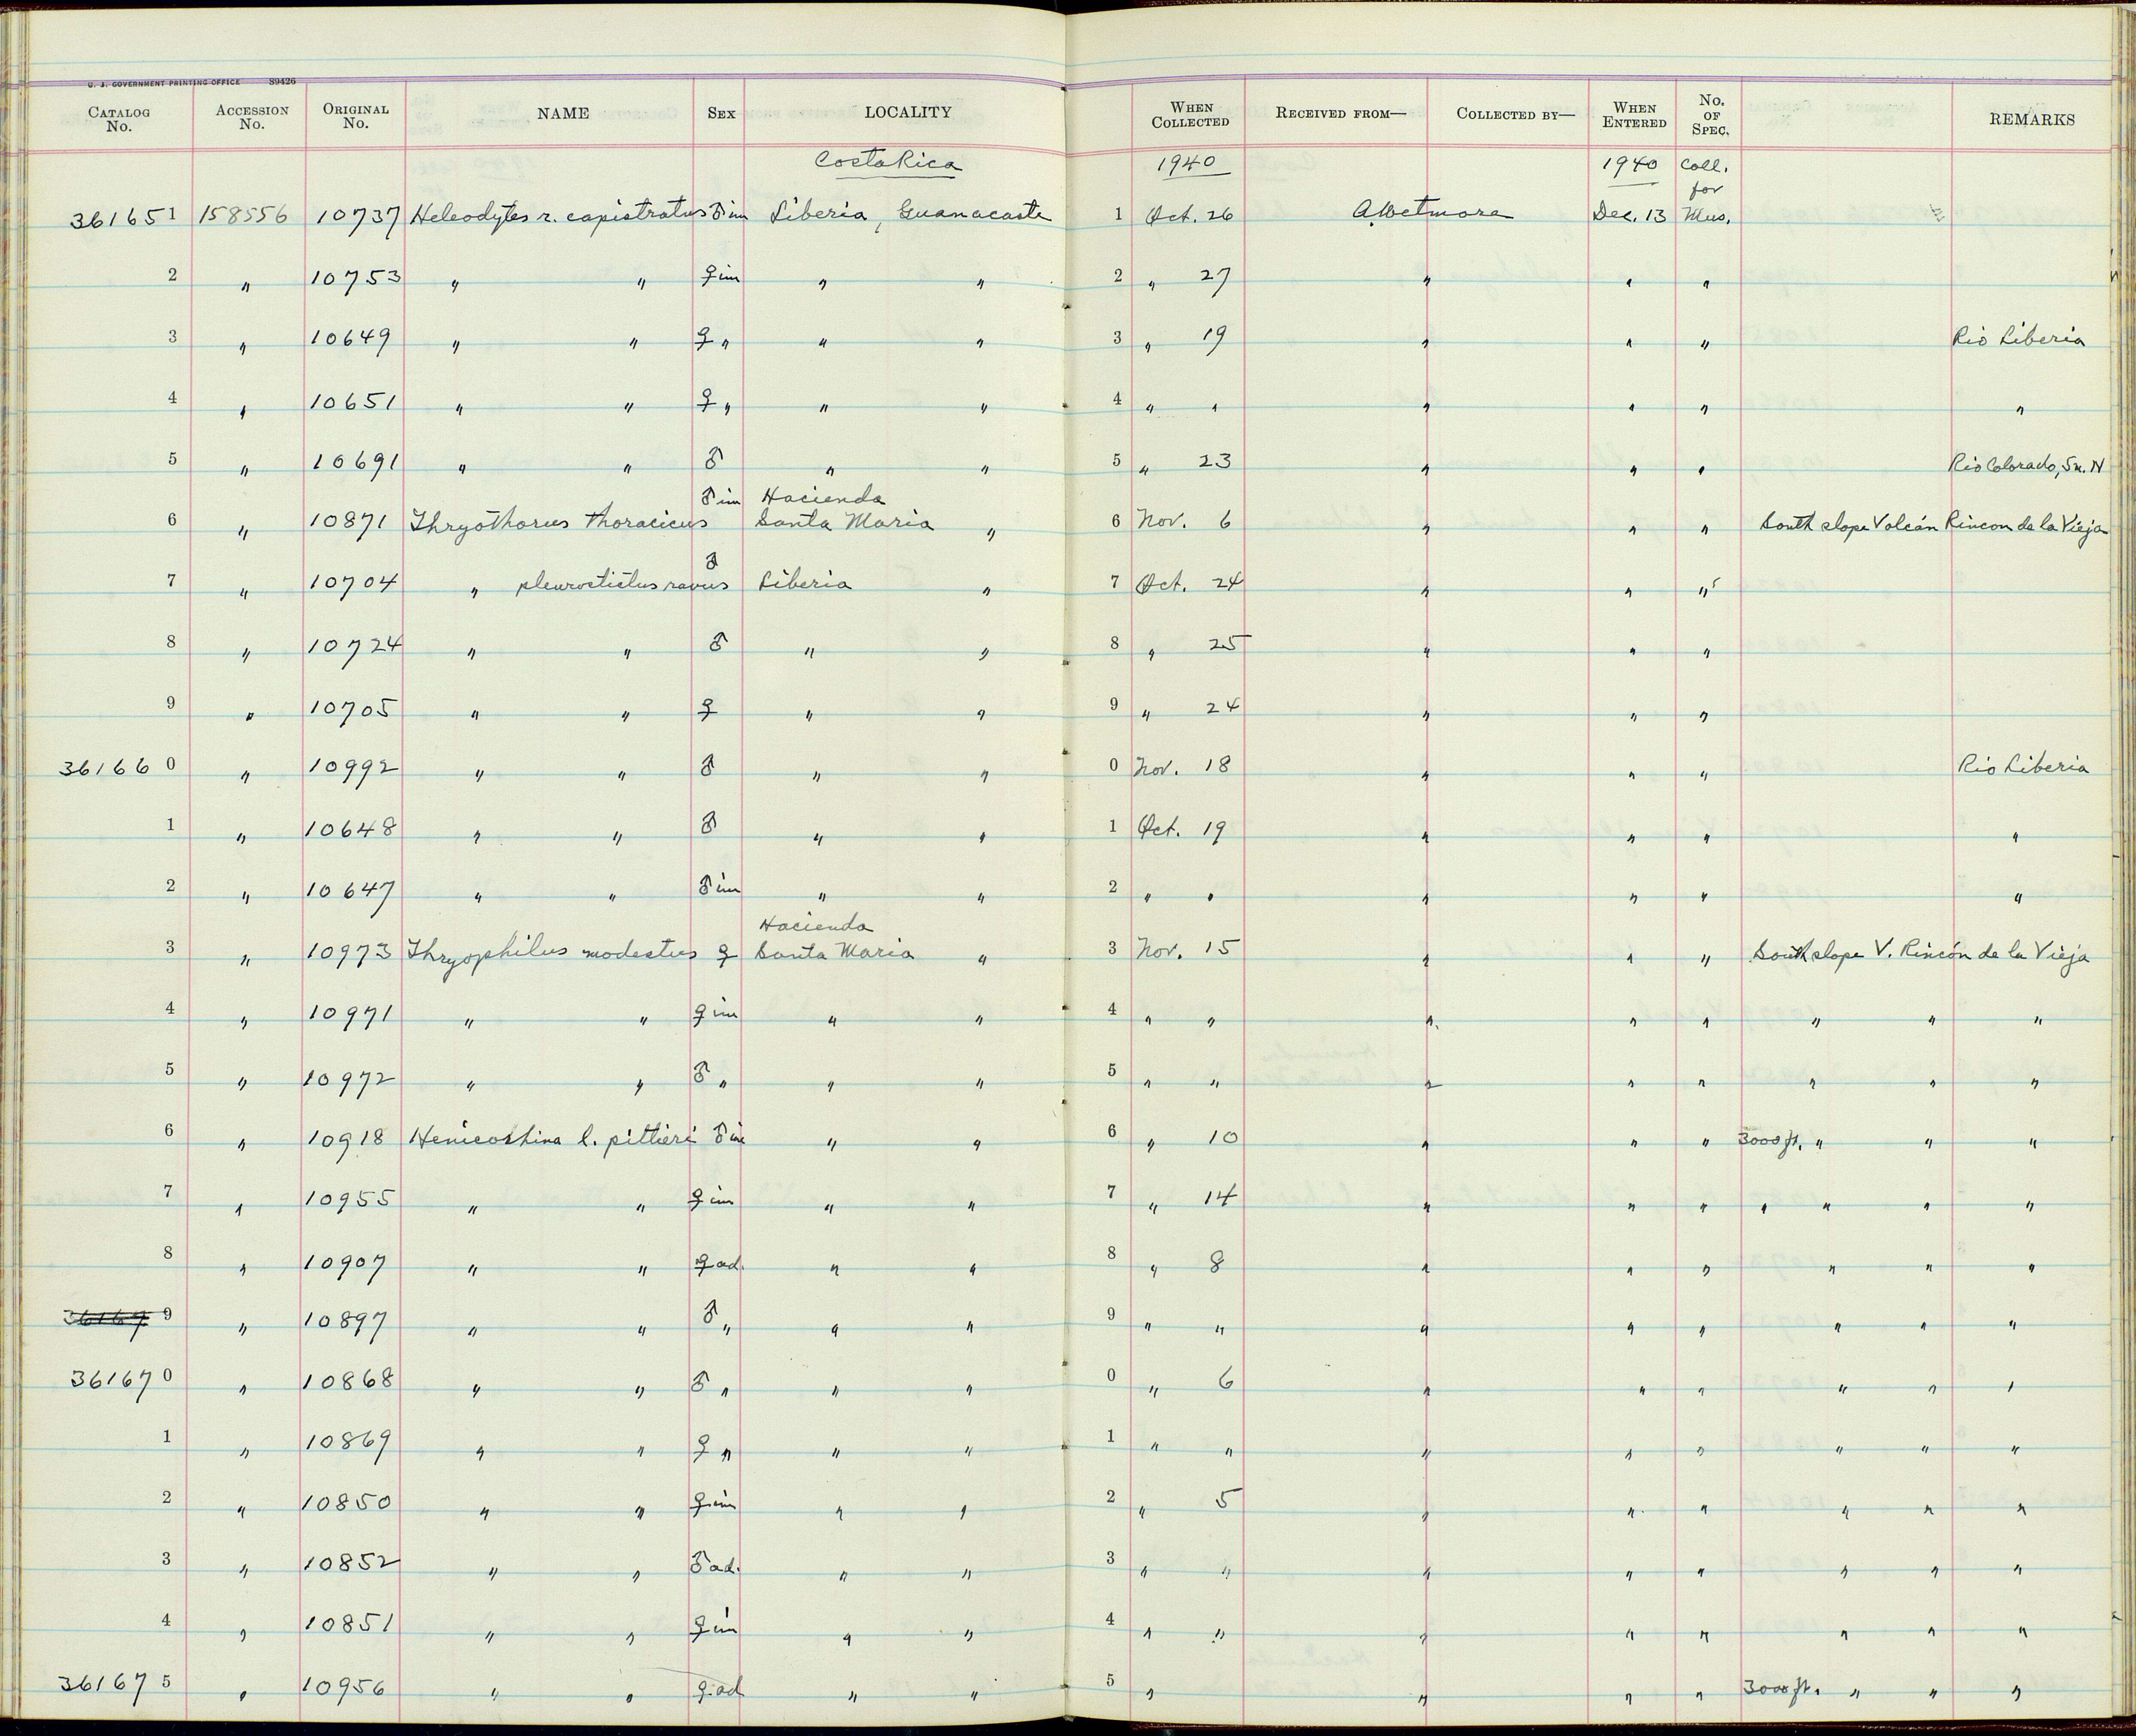 U. S. GOVERNMENT PRINTING OFFICE 89426
CATALOG No. ACCESSION No. ORIGINAL No. NAME SEX LOCALITY WHEN COLLECTED RECEIVED FROM— COLLECTED BY— WHEN ENTERED No. OF SPEC. REMARKS
Costa Rica 1940 1940 Coll. for
361651 158556 10737 Heleodytes r. capistratus ♂ im Liberia, Guanacaste 1 Oct. 26 A. Wetmore Dec. 13 Mus.
2 " 10753 " " ♀ im " " 2 " 27 " " "
3 " 10649 " " ♀ " " " 3 " 19 " " " Rio Liberia
4 " 10651 " " ♀ " " " 4 " " " " " "
5 " 10691 " " ♂ " " 5 " 23 " " " Rio Colorado, 5 K. N
6 " 10871 Thryothorus thoracicus ♂ im Hacienda Santa Maria " 6 Nov. 6 " " " South slope Volcán Rincon de la Vieja
7 " 10704 " pleurostictus ravus ♂ Liberia " 7 Oct. 24 " " "
8 " 10724 " " ♂ " " 8 " 25 " " "
9 " 10705 " " ♀ " " 9 " 24 " " "
361660 " 10992 " " ♂ " " 0 Nov. 18 " " " Rio Liberia
1 " 10648 " " ♂ " " 1 Oct. 19 " " " "
2 " 10647 " " ♂ im " " 2 " " " " " "
3 " 10973 Thryophilus modestus ♀ Hacienda Santa Maria " 3 Nov. 15 " " " South slope V. Rincón de la Vieja
4 " 10971 " " ♀ im " " 4 " " " " " " " "
5 " 10972 " " ♂ " " " 5 " " " " " " " "
6 " 10918 Henicorhina l. pittieri ♂ im " " 6 " 10 " " " 3000 ft. " " "
7 " 10955 " " ♀ im " " 7 " 14 " " " " " " "
8 " 10907 " " ♀ ad. " " 8 " 8 " " " " " "
36167 9 " 10897 " " ♂ " " " 9 " " " " " " " "
361670 " 10868 " " ♂ " " " 0 " 6 " " " " " "
1 " 10869 " " ♀ " " " 1 " " " " " " " "
2 " 10850 " " ♀ im " " 2 " 5 " " " " " "
3 " 10852 " " ♂ ad. " " 3 " " " " " " " "
4 " 10851 " " ♀ im " " 4 " " " " " " " "
361675 " 10956 " " ♀ ad " " 5 " " " " 3000 ft. " " "